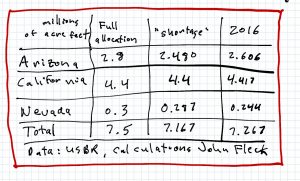 millions of acre feet Full allocation "shortage" 2016
Arizona 2.8 2.480 2.606
California 4.4 4.4 4.417
Nevada 0.3 0.287 0.244
Total 7.5 7.167 7.267
Data: USBR, calculations John Fleck